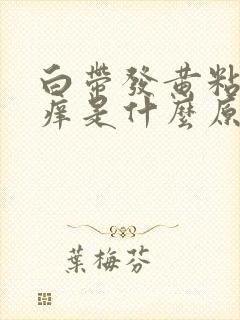 白帶發黃粘
痒是什麼原
葉梅芬